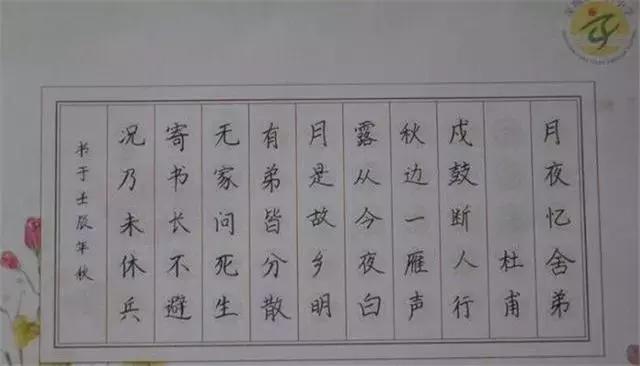 月夜忆舍弟
杜甫
戍鼓断人行
秋边一雁声
露从今夜白
月是故乡明
有弟皆分散
无家问死生
寄书长不避
况乃未休兵
书于壬辰年秋